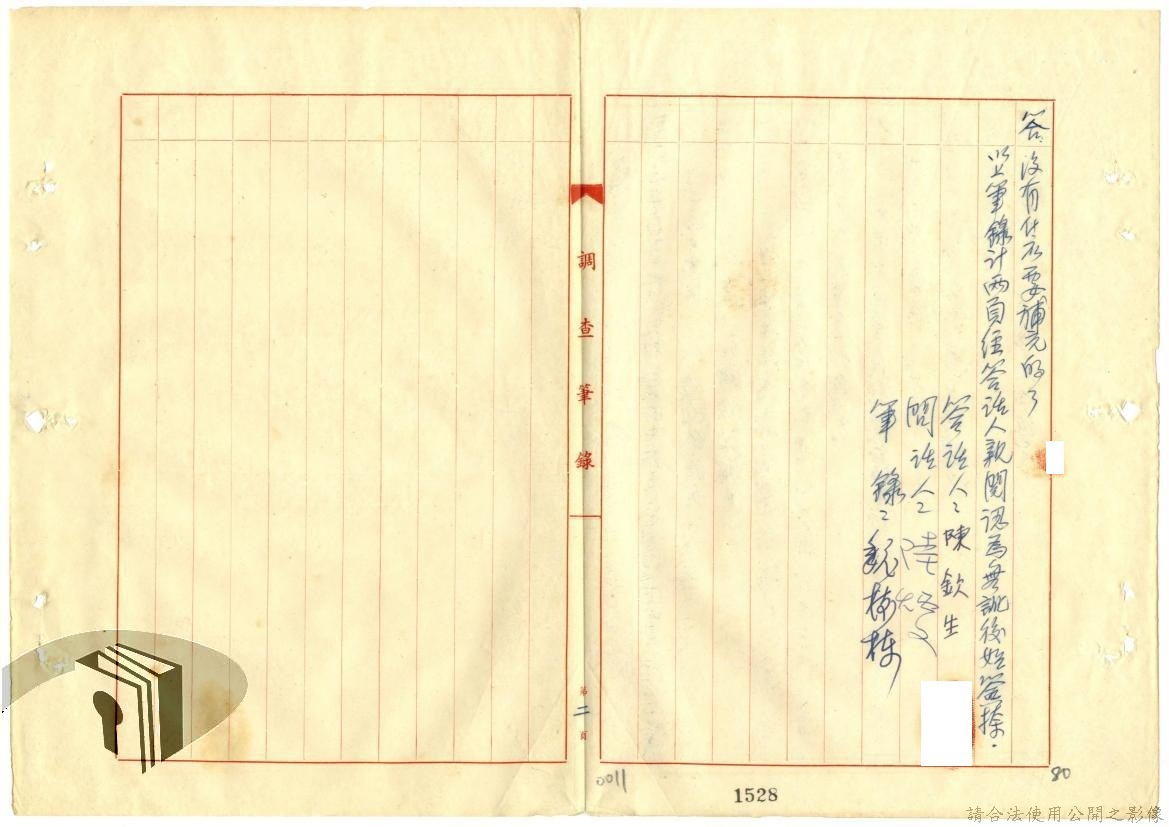 答：沒有什麼要補充的了
以上筆錄計兩頁經答話人親閱認為無訛後始簽捺．
答話人：陳欽生
問話人：陸
筆錄：魏
調查筆錄
第二頁
0011
1528
80
請合法使用公開之影像